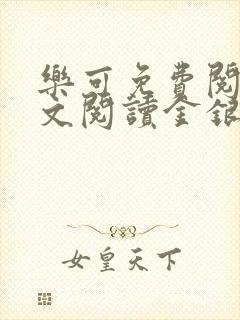 樂可免費閱
文閱讀金銀
女皇天下